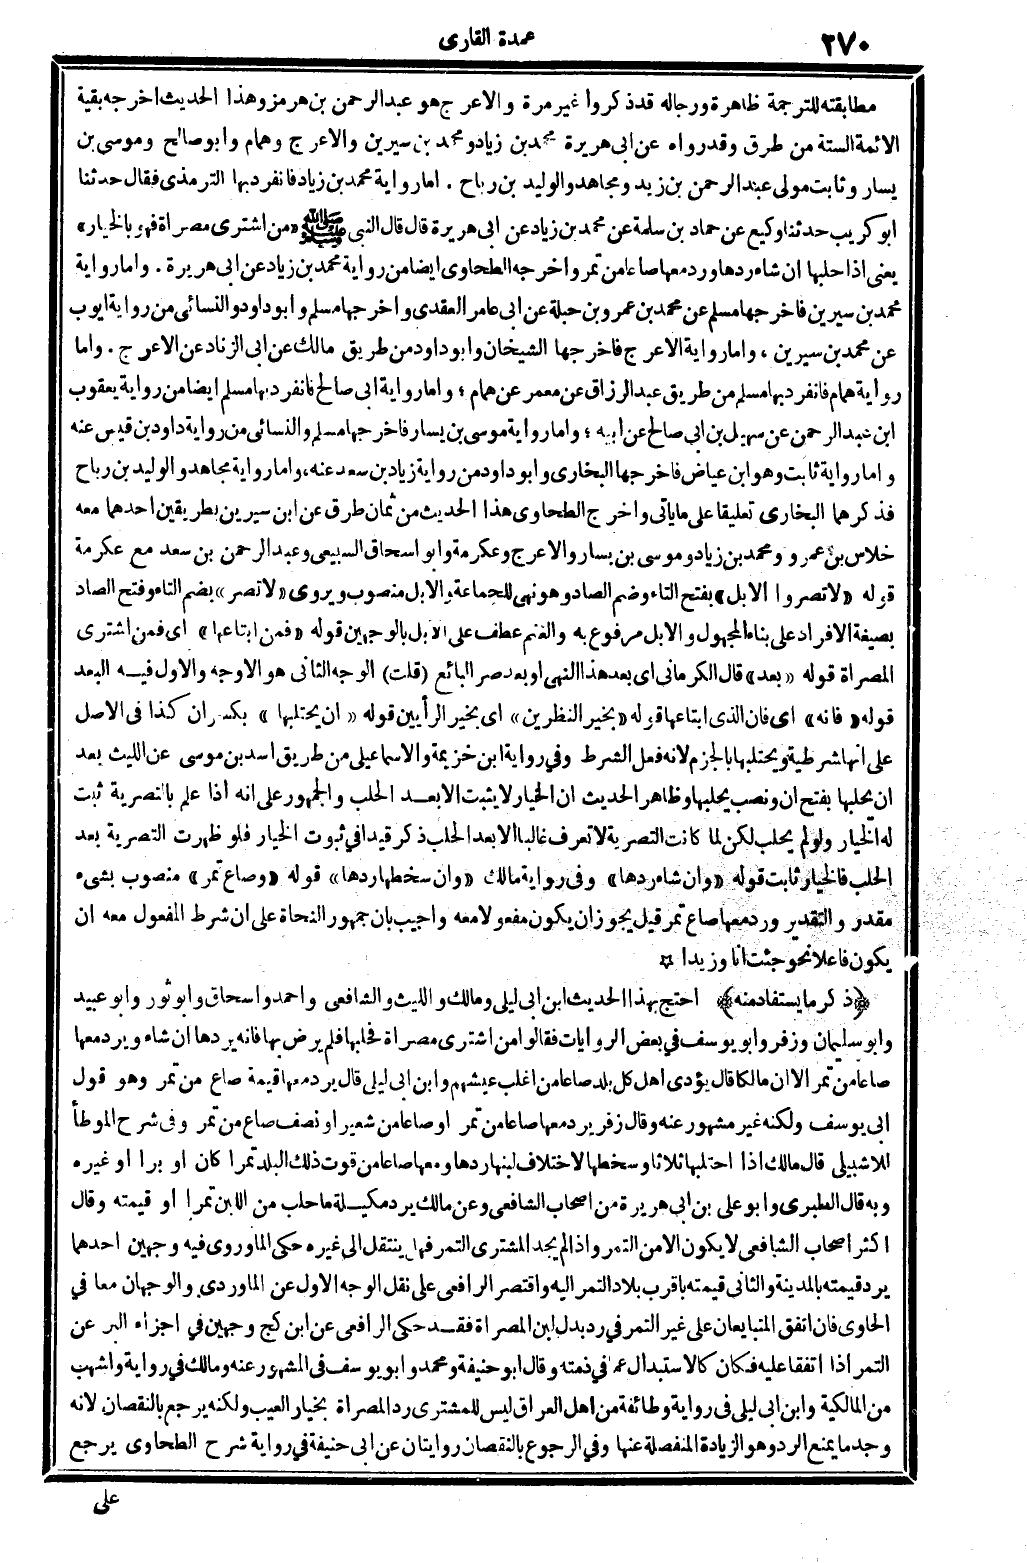 ٢٧٠
عمدة القارى
مطابقته للترجمة ظاهرة ورجاله قدذكروا غير مرة والاعرج هو عبدالرحمن بن هرمز وهذا الحديث اخرجه بقية
الائمة الستة من طرق وقدرواه عن ابى هريرة محمد بن زياد ومحمد بن سيرين والاعرج وهمام وابو صالح وموسى بن
يسار وثابت مولى عبدالرحمن بن زيد ومجاهد والوليد بن رباح . اما رواية محمد بن زياد فانفرد بها الترمذى فقال حدثنا
ابو كريب حدثنا وكيع عن حماد بن سلمة عن محمد بن زياد عن ابى هريرة قال قال النبى ﷺ «من اشترى مصراة فهو بالخيار»
يعنى اذا حلبها ان شاء ردها ورد معها صاعا من تمر واخرجه الطحاوى ايضا من رواية محمد بن زياد عن ابى هريرة . واما رواية
محمد بن سيرين فاخرجها مسلم عن محمد بن عمرو بن جبلة عن ابى عامر العقدى واخرجها مسلم وابو داود والنسائى من رواية ايوب
عن محمد بن سيرين ، واما رواية الاعرج فاخرجها الشيخان وابو داود من طريق مالك عن ابى الزناد عن الاعرج . واما
رواية همام فانفرد بها مسلم من طريق عبدالرزاق عن معمر عن همام ؛ واما رواية ابى صالح فانفرد بها مسلم ايضا من رواية يعقوب
ابن عبدالرحمن عن سهيل بن ابى صالح عن ابيه ؛ واما رواية موسى بن يسار فاخرجها مسلم والنسائى من رواية داود بن قيس عنه
واما رواية ثابت وهو ابن عياض فاخرجها البخارى وابو داود من رواية زياد بن سعد عنه ، واما رواية مجاهد والوليد بن رباح
فذكرهما البخارى تعليقا على ماياتى واخرج الطحاوى هذا الحديث من ثمان طرق عن ابن سيرين بطريقين احدهما معه
خلاس بن عمرو ومحمد بن زياد وموسى بن يسار والاعرج وعكرمة وابو اسحاق السبيعى وعبدالرحمن بن سعد مع عكرمة
قوله «لا تصروا الابل» بفتح التاء وضم الصاد وهو نهى للجماعة والابل منصوب ويروى «لا تصر» بضم التاء وفتح الصاد
بصيغة الافراد على بناء المجهول والابل مرفوع به والغنم عطف على الابل بالوجهين قوله «فمن ابتاعها» اى فمن اشترى
المصراة قوله «بعد» قال الكرمانى اى بعد هذا النهى او بعد صر البائع (قلت) الوجه الثانى هو الاوجه والاول فيه البعد
قوله «فانه» اى فان الذى ابتاعها قوله «بخير النظرين» اى بخير الرأيين قوله «ان يحتلبها» بكسر ان كذا فى الاصل
على انها شرطية ويحتلبها بالجزم لانه فعل الشرط وفي رواية ابن خزيمة والاسماعيلى من طريق اسد بن موسى عن الليث بعد
ان يحلبها بفتح ان ونصب يحلبها وظاهر الحديث ان الخيار لا يثبت الا بعد الحلب والجمهور على انه اذا علم بالتصرية ثبت
له الخيار ولولم يحلب لكن لما كانت التصرية لا تعرف غالبا الا بعد الحلب ذكر قيدا في ثبوت الخيار فلو ظهرت التصرية بعد
الحلب فالخيار ثابت قوله «وان شاء ردها» وفى رواية مالك «وان سخطها ردها» قوله «وصاع تمر» منصوب بشىء
مقدر والتقدير ورد معها صاع تمر قيل يجوز ان يكون مفعولا معه واجيب بان جمهور النحاة على ان شرط المفعول معه ان
يكون فاعلا نحو جئت انا وزيدا ✡
﴿ذكر ما يستفاد منه﴾ احتج بهذا الحديث ابن ابى ليلى ومالك والليث والشافعى واحمد واسحاق وابو ثور وابو عبيد
وابو سليمان وزفر وابو يوسف في بعض الروايات فقالوا من اشترى مصراة فحلبها فلم يرض بها فانه يردها ان شاء ويرد معها
صاعا من تمر الا ان مالكا قال يؤدى اهل كل بلد صاعا من اغلب عيشهم وابن ابى ليلى قال يرد معها قيمة صاع من تمر وهو قول
ابى يوسف ولكنه غير مشهور عنه وقال زفر يرد معها صاعا من تمر او صاعا من شعير او نصف صاع من تمر وفى شرح الموطأ
للاشبيلى قال مالك اذا احتلبها ثلاثا وسخطها لاختلاف لبنها ردها ومعها صاعا من قوت ذلك البلد تمرا كان او برا او غيره
وبه قال الطبرى وابو على بن ابى هريرة من اصحاب الشافعى وعن مالك يرد مكيلة ما حلب من اللبن تمرا او قيمته وقال
اكثر اصحاب الشافعى لا يكون الا من التمر واذا لم يجد المشترى التمر فهل ينتقل الى غيره حكى الماوردى فيه وجهين احدهما
يرد قيمته بالمدينة والثانى قيمته باقرب بلاد التمر اليه واقتصر الرافعى على نقل الوجه الاول عن الماوردى والوجهان معا في
الحاوى فان اتفق المتبايعان على غير التمر في رد بدل لبن المصراة فقد حكى الرافعى عن ابن كج وجهين في اجزاء البر عن
التمر اذا اتفقا عليه فكان كالاستبدال عما فى ذمته وقال ابو حنيفة ومحمد وابو يوسف فى المشهور عنه ومالك في رواية واشهب
من المالكية وابن ابى ليلى فى رواية وطائفة من اهل العراق ليس للمشترى رد المصراة بخيار العيب ولكنه يرجع بالنقصان لانه
وجد ما يمنع الرد وهو الزيادة المنفصلة عنها وفي الرجوع بالنقصان روايتان عن ابى حنيفة في رواية شرح الطحاوى يرجع
على